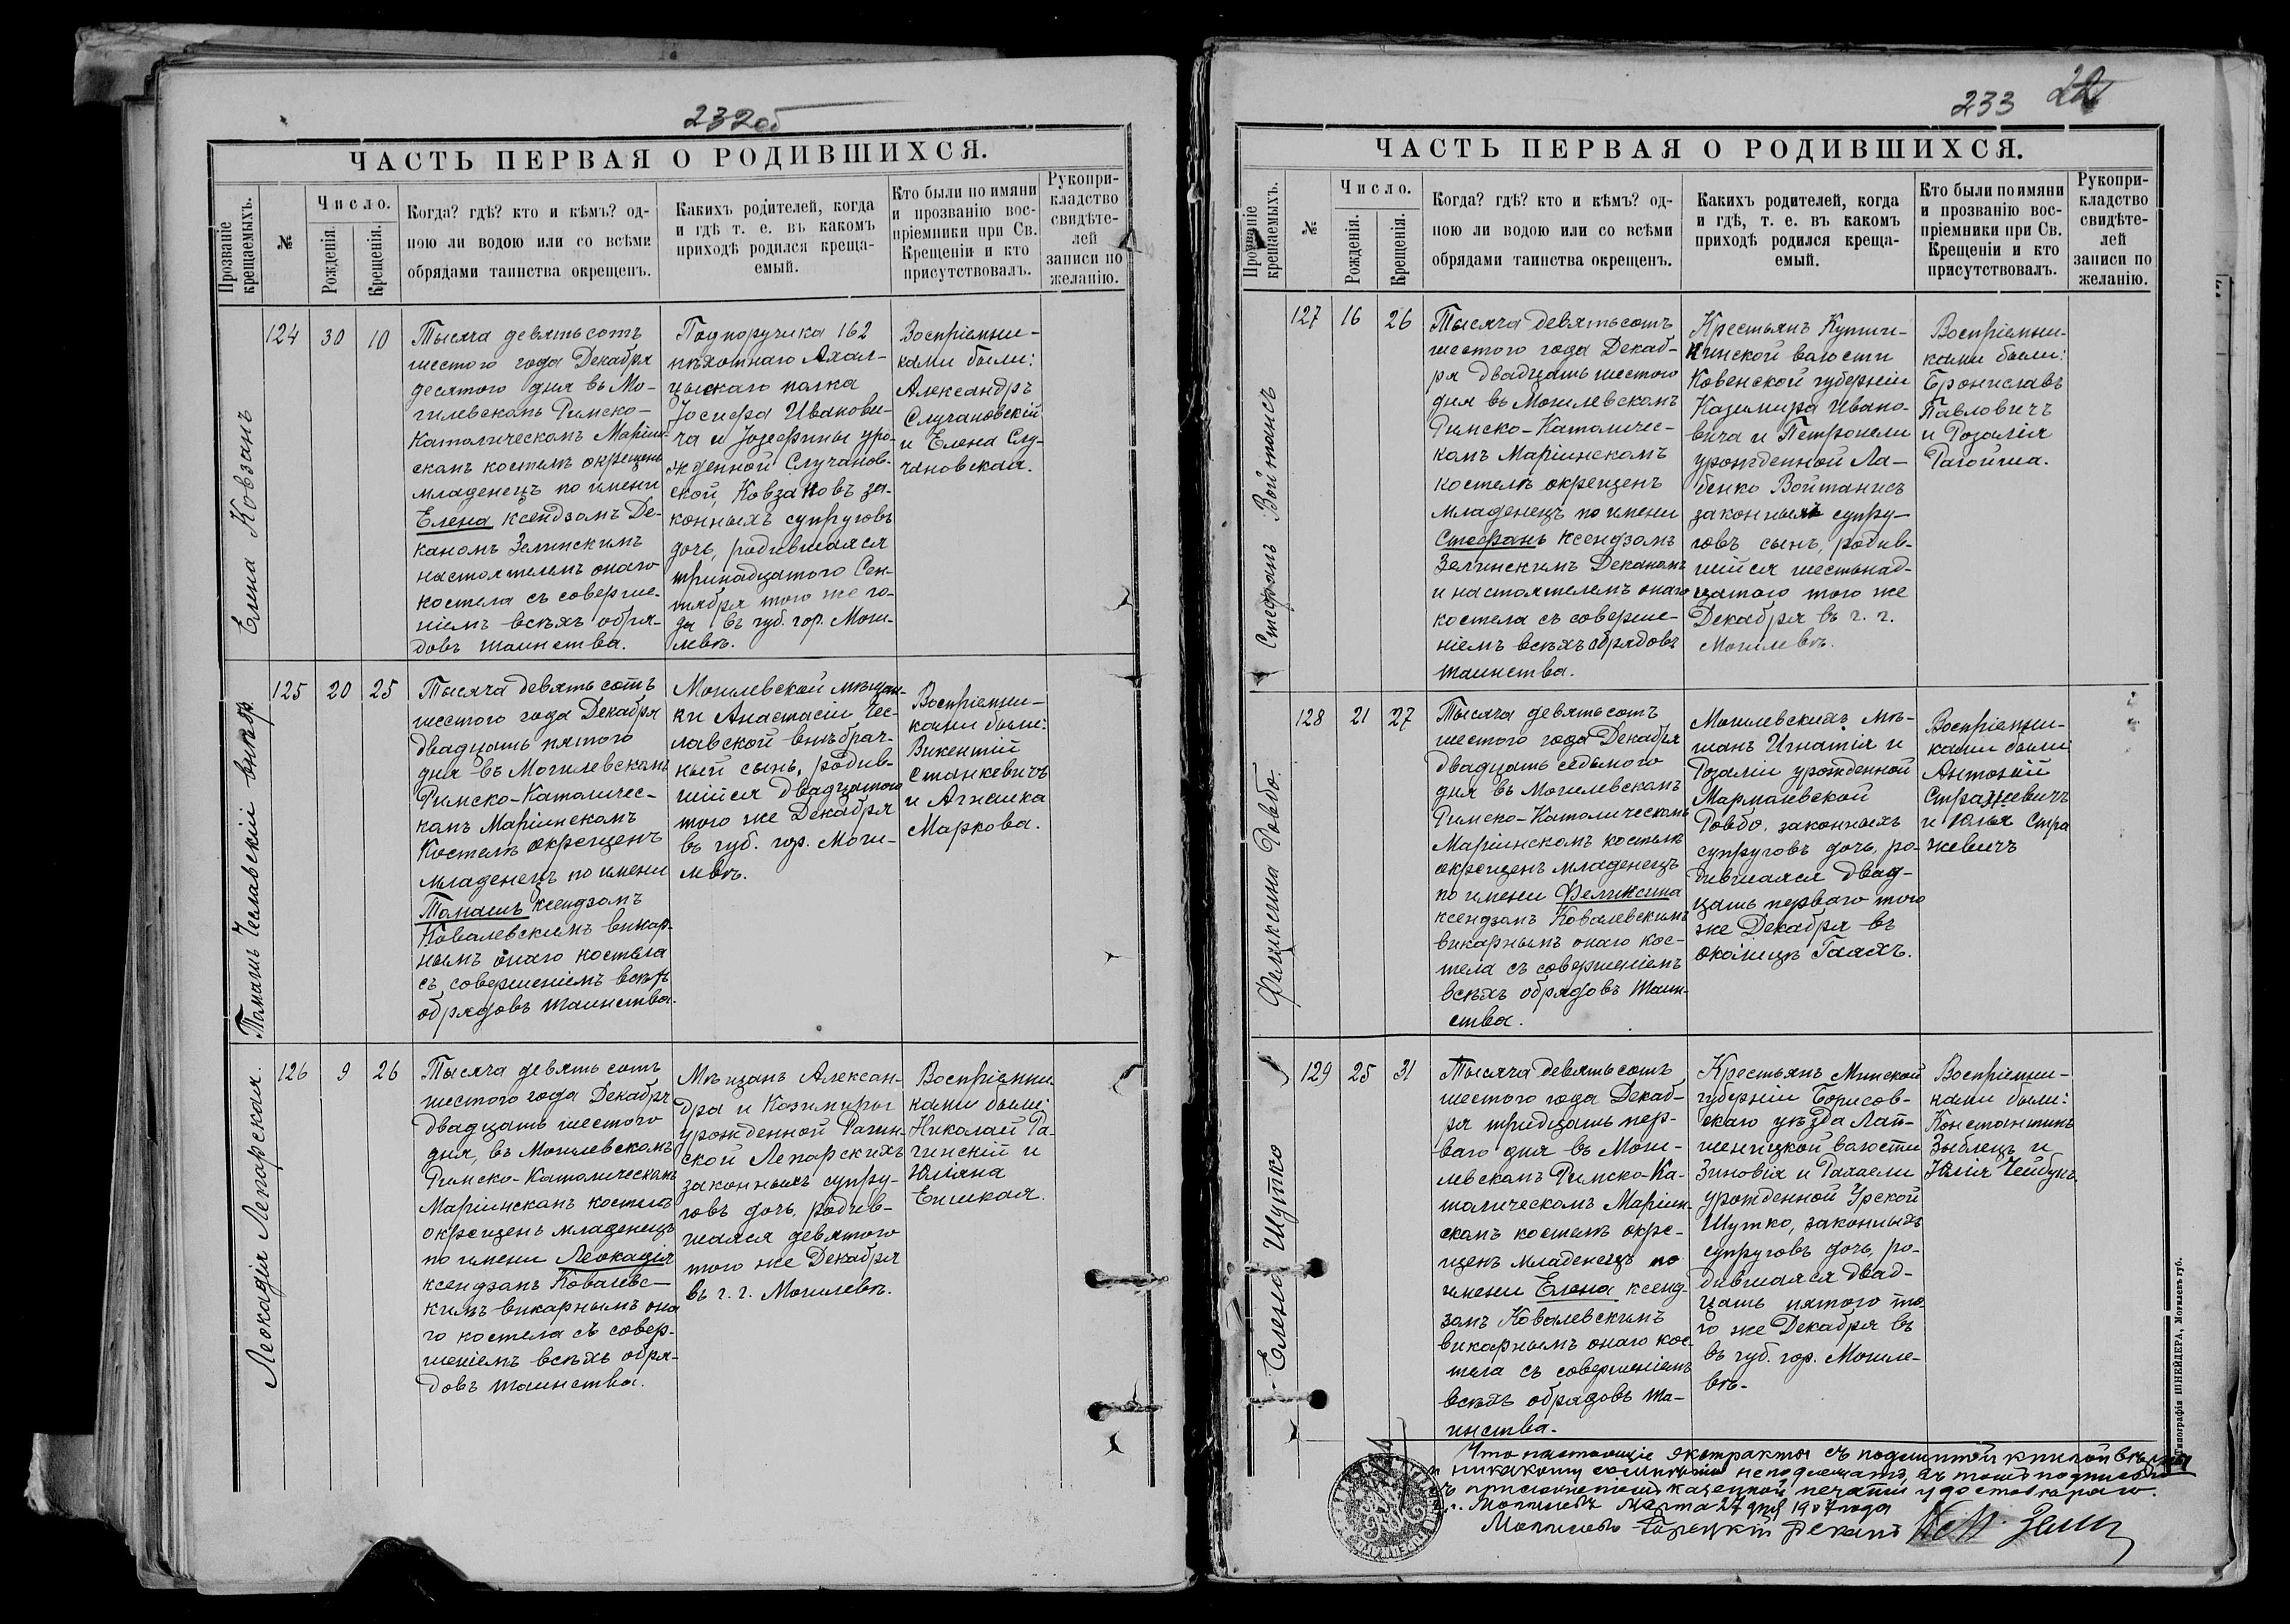 232об
ЧАСТЬ ПЕРВАЯ О РОДИВШИХСЯ.
Прозваніе крещаемыхъ.
№
Число.
Рожденія.
Крещенія.
Когда? гдѣ? кто и кѣмъ? од-
ною ли водою или со всѣми
обрядами таинства окрещенъ.
Какихъ родителей, когда
и гдѣ т. е. въ какомъ
приходѣ родился креща-
емый.
Кто были по имяни
и прозванію вос-
пріемники при Св.
Крещеніи и кто
присутствовалъ.
Рукопри-
кладство
свидѣте-
лей
записи по
желанію.
Елена Ковзанъ
124
30
10
Тысяча девятьсотъ
шестого года Декабря
десятого дня въ Мо-
гилевскомъ Римско-
Католическомъ Маріин-
скомъ костелѣ окрещенъ
младенецъ по имени
Елена ксендзомъ Де-
каномъ Зелинскимъ
настоятелемъ онаго
костела съ соверше-
ніемъ всѣхъ обря-
довъ таинства.
Подпоручика 162
пѣхотнаго Ахал-
цыскаго полка
Іосифа Иванови-
ча и Іозефины уро-
жденной Случанов-
ской, Ковзановъ за-
конныхъ супруговъ
дочь, родившаяся
тринадцатого Сен-
тября того же го-
да въ губ. гор. Моги-
левѣ.
Воспріемни-
ками были:
Александръ
Случановскій
и Елена Слу-
чановская.
Томашъ Чеславскій внѣбр.
125
20
25
Тысяча девятьсотъ
шестого года Декабря
двадцать пятого
дня въ Могилевскомъ
Римско-Католичес-
комъ Маріинскомъ
Костелѣ окрещенъ
младенецъ по имени
Томашъ ксендзомъ
Ковалевскимъ викар-
нымъ онаго костела
съ совершеніемъ всѣхъ
обрядовъ таинства.
Могилевской мѣщан-
ки Анастасіи Чес-
лавской внѣбрач-
ный сынъ, родив-
шійся двадцатого
того же Декабря
въ губ. гор. Моги-
левѣ.
Воспріемни-
ками были:
Викентій
Станкевичъ
и Агнешка
Маркова.
Леокадія Лепарская.
126
9
26
Тысяча девятьсотъ
шестого года Декабря
двадцать шестого
дня, въ Могилевскомъ
Римско-Католическомъ
Маріинскомъ костелѣ
окрещенъ младенецъ
по имени Леокадія
ксендзомъ Ковалевс-
кимъ викарнымъ она
го костела съ совер-
шеніемъ всѣхъ обря-
довъ таинства.
Мѣщанъ Алексан-
дра и Казимиры
урожденной Рагин-
ской Лепарскихъ
законныхъ супру-
говъ дочь, родив-
шаяся девятого
того же Декабря
въ г. г. Могилевѣ.
Воспріемни-
ками были:
Николай Ра-
гинскій и
Юліяна
233
22
ЧАСТЬ ПЕРВАЯ О РОДИВШИХСЯ.
Прозваніе крещаемыхъ.
№
Число.
Рожденія.
Крещенія.
Когда? гдѣ? кто и кѣмъ? од-
ною ли водою или со всѣми
обрядами таинства окрещенъ.
Какихъ родителей, когда
и гдѣ, т. е. въ какомъ
приходѣ родился креща-
емый.
Кто были по имяни
и прозванію вос-
пріемники при Св.
Крещеніи и кто
присутствовалъ.
Рукопри-
кладство
свидѣте-
лей
записи по
желанію.
Стефанъ Войтанисъ
127
16
26
Тысяча девятьсотъ
шестого года Декаб-
ря двадцать шестого
дня въ Могилевскомъ
Римско-Католичес-
комъ Маріинскомъ
костелѣ окрещенъ
младенецъ по имени
Стефанъ ксендзомъ
Зелинскимъ Деканомъ
и настоятелемъ онаго
костела съ соверше-
ніемъ всѣхъ обрядовъ
таинства.
Крестьянъ
волости
Ковенской губерніи
Казимира Ивано-
вича и Петронели
урожденной Ла-
бенко Войтанисъ
законныхъ супру-
говъ сынъ, родив-
шійся шестьнад-
цатого того же
Декабря въ г. г.
Могилевѣ.
Воспріемни-
ками были:
Брониславъ
Павловичъ
и Розалія
Рагойша.
Феликсина Ровбо.
128
21
27
Тысяча девятьсотъ
шестого года Декабря
двадцать седьмого
дня въ Могилевскомъ
Римско-Католическомъ
Маріинскомъ костелѣ
окрещенъ младенецъ
по имени Феликсина
ксендзомъ Ковалевскимъ
викарнымъ онаго кос-
тела съ совершеніемъ
всѣхъ обрядовъ таин-
ства.
Могилевскихъ мѣ-
щанъ Игнатія и
Розаліи урожденной
Ровбо, законныхъ
супруговъ дочь, ро-
дившаяся двад-
цать перваго того
же Декабря въ
околицѣ Гаяхъ.
Воспріемни-
ками были
Антоній
Стражевичъ
и Юлья Стра
жевичъ
Елена Шутко
129
25
31
Тысяча девятьсотъ
шестого года Декаб-
ря тридцать пер-
ваго дня въ Моги-
левскомъ Римско-Ка-
толическомъ Маріин-
скомъ костелѣ окре-
щенъ младенецъ по
имени Елена ксенд-
зомъ Ковалевскимъ
викарнымъ онаго кос-
тела съ совершеніемъ
всѣхъ обрядовъ та-
инства.
Крестьянъ Минской
губерніи Борисов-
скаго уѣзда
волости
Зиновія и Рахаели
урожденной
Шутко, законныхъ
супруговъ дочь, ро-
дившаяся двад-
цать пятого то-
го же Декабря въ
въ губ. гор. Могиле-
вѣ.
Воспріемни-
ками были:
Константинъ
Зыблецъ и
Юлія
Что настоящіе экстракты съ подлинной книгой вѣрны
и никакому сомнѣнію неподлежатъ, въ томъ подписью
съ приложеніемъ казенной печати удостовѣряю.
г. Могилевъ Марта 27 дня 1907 года
Могилево-Горецкій Деканъ
Типографія ШНЕЙДЕРА, Могилевъ губ.